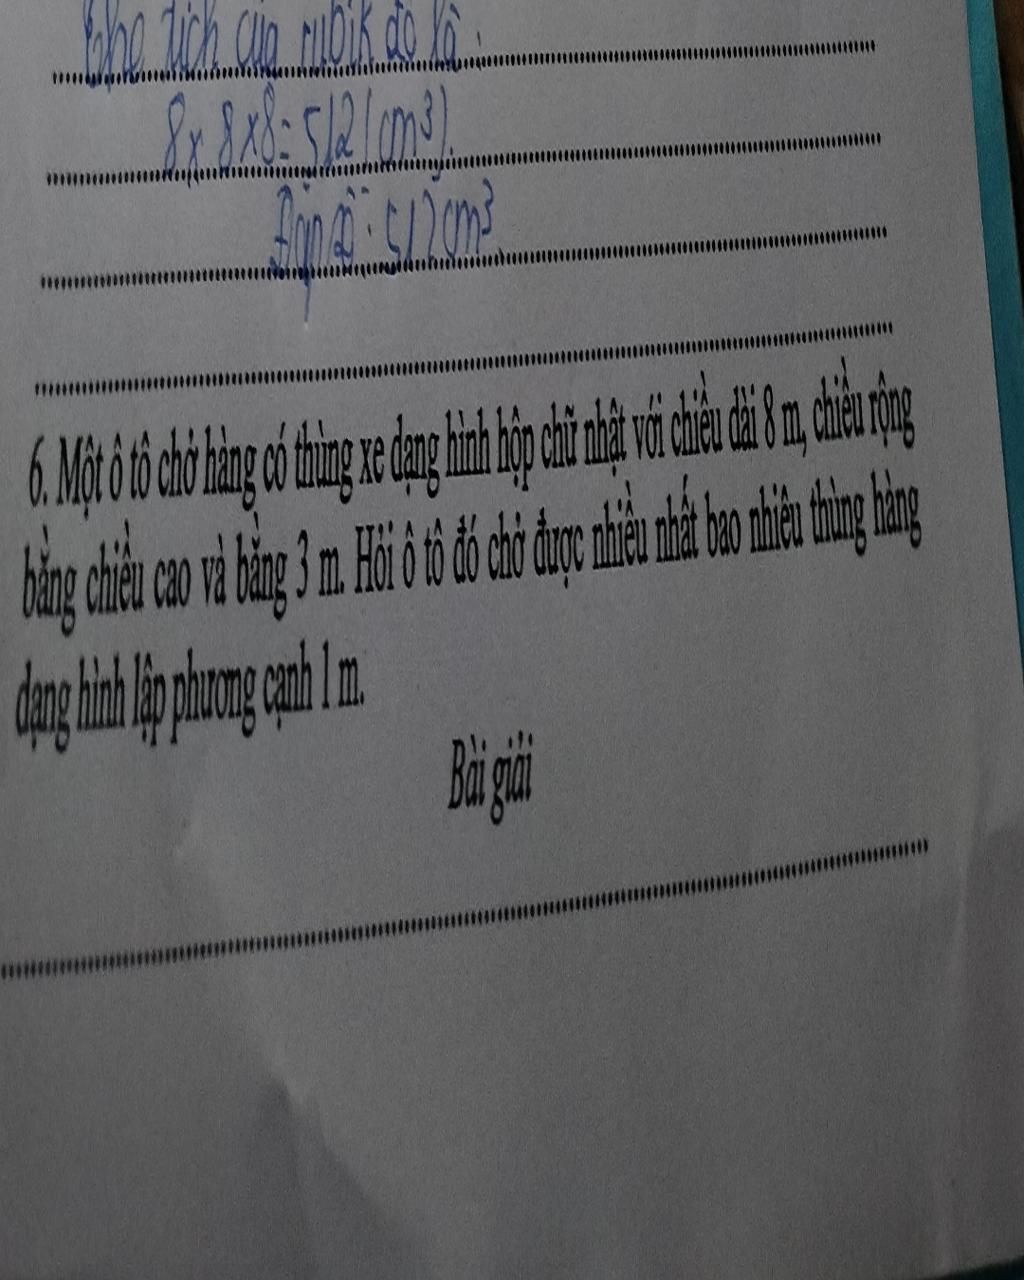 thể tích của rubik đó là :
8 x 8 x 8 = 512 (cm³).
Đáp số : 512 cm³.
6. Một ô tô chở hàng có thùng xe dạng hình hộp chữ nhật với chiều dài 8 m, chiều rộng
bằng chiều cao và bằng 3 m. Hỏi ô tô đó chở được nhiều nhất bao nhiêu thùng hàng
dạng hình lập phương cạnh 1 m.
Bài giải